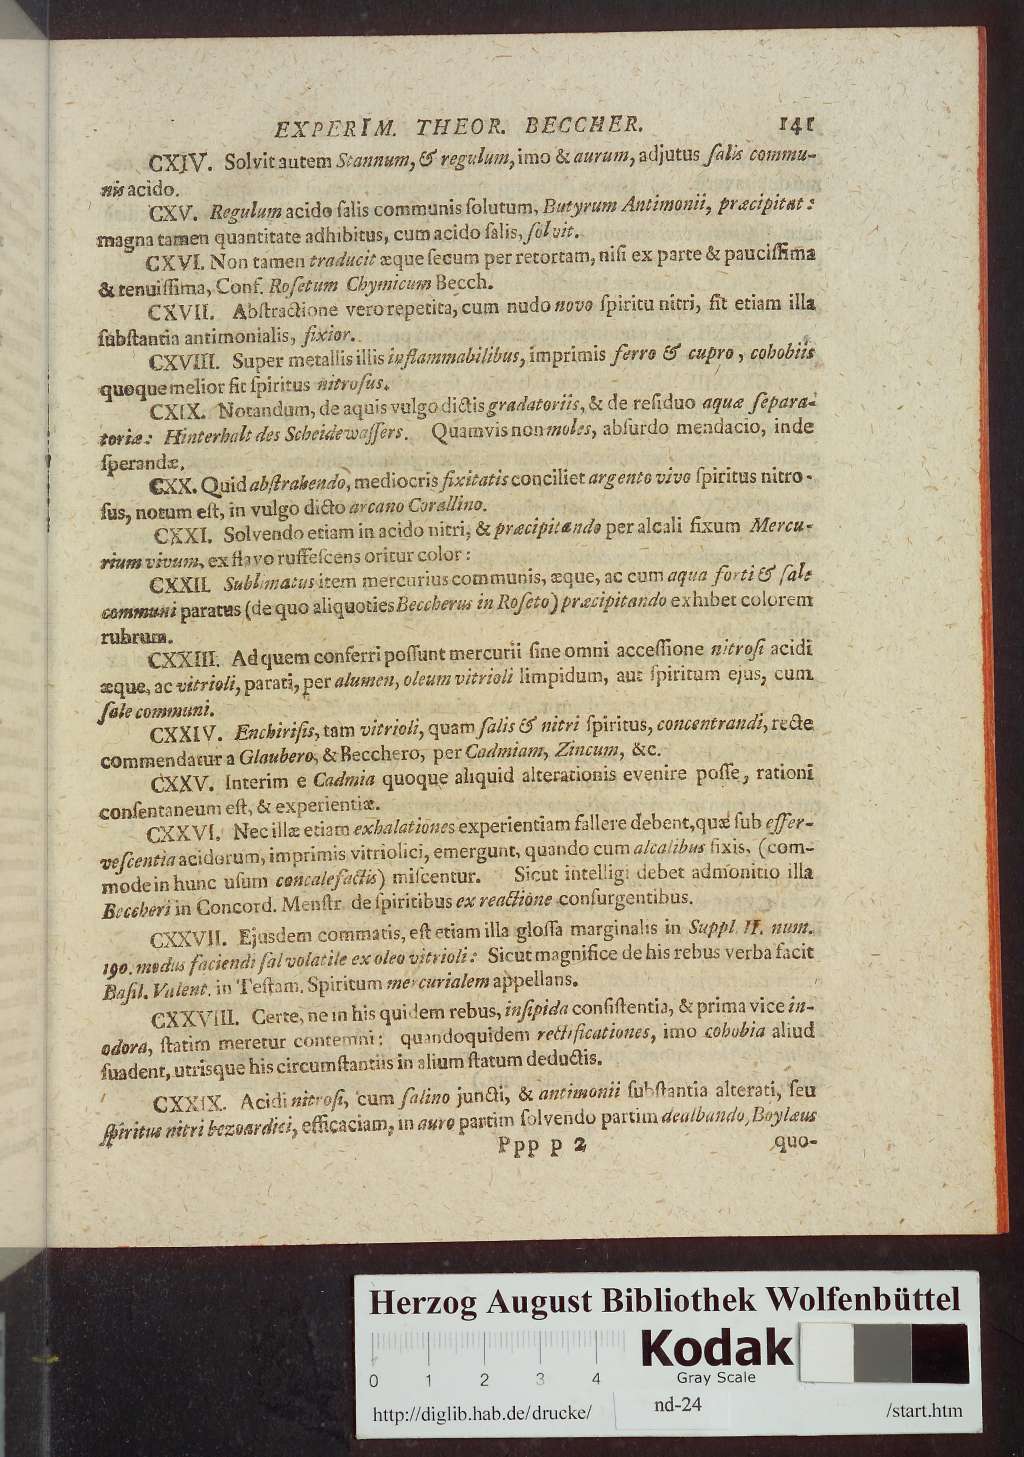 EXPERIM. THEOR. BECCHER. 141
CXIV. Solvit autem Stannum, & regulum, imo & aurum, adjutus ſalis commu-
nis acido.
CXV. Regulum acido ſalis communis ſolutum, Butyrum Antimonii, præcipitat:
magna tamen quantitate adhibitus, cum acido ſalis, ſolvit.
CXVI. Non tamen traducit æque ſecum per retortam, niſi ex parte & pauciſſima
& tenuiſſima, Conf. Roſetum Chymicum Becch.
CXVII. Abſtractione vero repetita, cum nudo novo ſpiritu nitri, fit etiam illa
ſubſtantia antimonialis, fixior.
CXVIII. Super metallis illis inflammabilibus, imprimis ferro & cupro, cohobiis
quoque melior fit ſpiritus nitroſus.
CXIX. Notandum, de aquis vulgo dictis gradatoriis, & de reſiduo aquæ ſepara-
toriæ: Hinterhalt des Scheidewaſſers. Quamvis non moles, abſurdo mendacio, inde
ſperandæ.
CXX. Quid abſtrahendo, mediocris fixitatis conciliet argento vivo ſpiritus nitro-
ſus, notum eſt, in vulgo dicto arcano Corallino.
CXXI. Solvendo etiam in acido nitri, & præcipitando per alcali fixum Mercu-
rium vivum, ex flavo ruffeſcens oritur color:
CXXII. Sublimatus item mercurius communis, æque, ac cum aqua forti & ſale
communi paratus (de quo aliquoties Beccherus in Roſeto) præcipitando exhibet colorem
rubrum.
CXXIII. Ad quem conferri poſſunt mercurii ſine omni acceſſione nitroſi acidi
æque, ac vitrioli, parati, per alumen, oleum vitrioli limpidum, aut ſpiritum ejus, cum
ſale communi.
CXXIV. Enchiriſis, tam vitrioli, quam ſalis & nitri ſpiritus, concentrandi, recte
commendatur a Glaubero, & Becchero, per Cadmiam, Zincum, &c.
CXXV. Interim e Cadmia quoque aliquid alterationis evenire poſſe, rationi
conſentaneum eſt, & experientiæ.
CXXVI. Nec illæ etiam exhalationes experientiam fallere debent, quæ ſub effer-
veſcentia acidorum, imprimis vitriolici, emergunt, quando cum alcalibus fixis, (com-
mode in hunc uſum concalefactis) miſcentur. Sicut intelligi debet admonitio illa
Beccheri in Concord. Menſtr. de ſpiritibus ex reactione conſurgentibus.
CXXVII. Ejusdem commatis, eſt etiam illa gloſſa marginalis in Suppl. II. num.
190. modus faciendi ſal volatile ex oleo vitrioli: Sicut magnifice de his rebus verba facit
Baſil. Valent. in Teſtam. Spiritum mercurialem appellans.
CXXVIII. Certe, ne in his quidem rebus, inſipida conſiſtentia, & prima vice in-
odora, ſtatim meretur contemni: quandoquidem rectificationes, imo cohobia aliud
ſuadent, utrisque his circumſtantiis in alium ſtatum deductis.
CXXIX. Acidi nitroſi, cum ſalino juncti, & antimonii ſubſtantia alterati, ſeu
ſpiritus nitri bezoardici, efficaciam, in auro partim ſolvendo partim dealbando, Boylæus
Ppp p 2 quo-
Herzog August Bibliothek Wolfenbüttel
Kodak
Gray Scale
0 1 2 3 4
http://diglib.hab.de/drucke/ nd-24 /start.htm